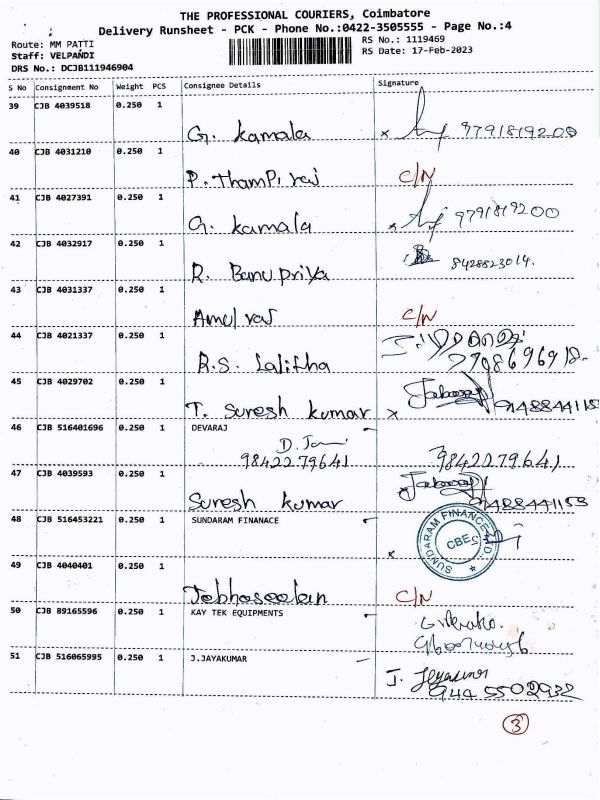 THE PROFESSIONAL COURIERS, Coimbatore
Delivery Runsheet - PCK - Phone No.:0422-3505555 - Page No.:4
Route: MM PATTI
RS No.: 1119469
Staff: VELPANDI
RS Date: 17-Feb-2023
DRS No.: DCJB111946904
S No Consignment No Weight PCS Consignee Details Signature
39 CJB 4039518 0.250 1
G. Kamala x 9791819200
40 CJB 4031210 0.250 1
P. Thampi raj C/N
41 CJB 4027391 0.250 1
G. Kamala x 9791819200
42 CJB 4032917 0.250 1
R. Banu priya 8428823014.
43 CJB 4031337 0.250 1
Amul raj C/N
44 CJB 4021337 0.250 1
R.S. Lalitha
45 CJB 4029702 0.250 1
T. Suresh kumar x
46 CJB 516401696 0.250 1 DEVARAJ
9842279641 9842279641
47 CJB 4039593 0.250 1
Suresh kumar 9488441153
48 CJB 516453221 0.250 1 SUNDARAM FINANACE
SUNDARAM FINANCE LTD.
CBE
x
49 CJB 4040401 0.250 1
C/N
50 CJB 89165596 0.250 1 KAY TEK EQUIPMENTS
51 CJB 516065995 0.250 1 J.JAYAKUMAR
9445502932
3